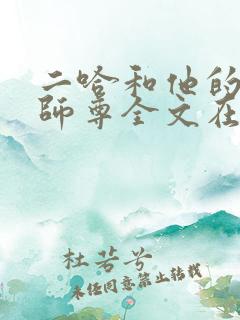 二哈和他的
師尊全文在
杜若兮
未任同意禁止转载